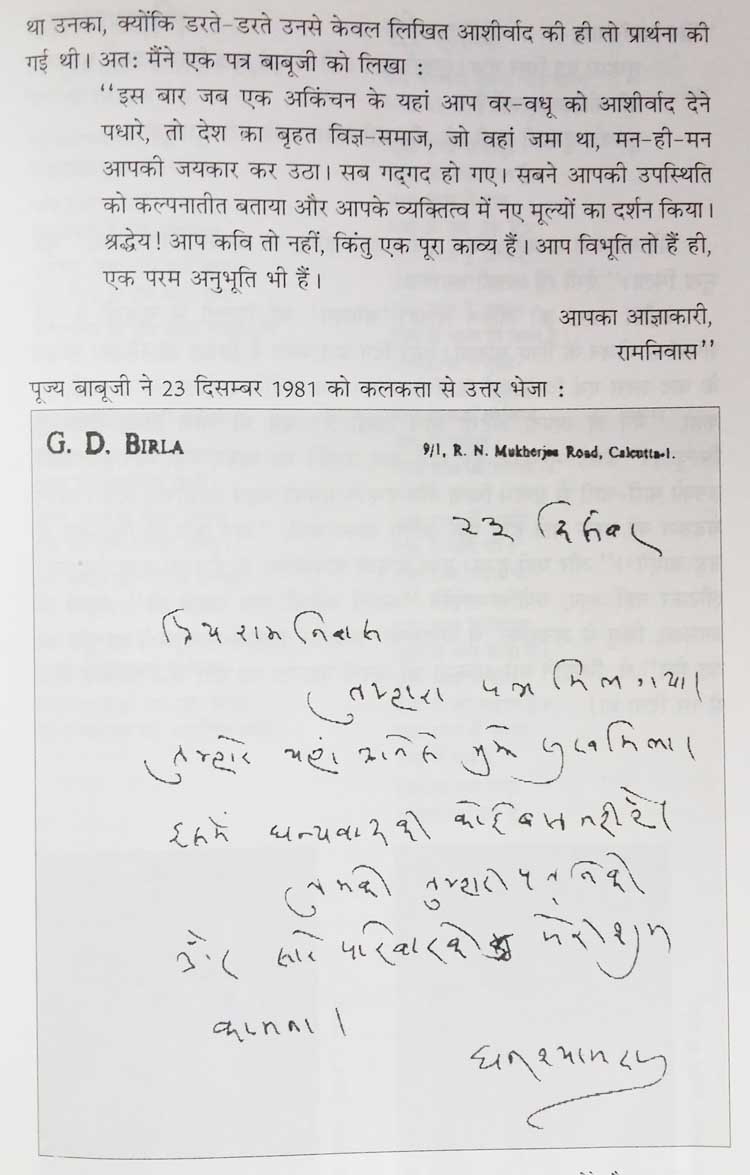 था उनका, क्योंकि डरते-डरते उनसे केवल लिखित आशीर्वाद की ही तो प्रार्थना की
गई थी। अतः मैंने एक पत्र बाबूजी को लिखा :
“इस बार जब एक अकिंचन के यहां आप वर-वधू को आशीर्वाद देने
पधारे, तो देश का बृहत विज्ञ-समाज, जो वहां जमा था, मन-ही-मन
आपकी जयकार कर उठा। सब गद्‌गद हो गए। सबने आपकी उपस्थिति
को कल्पनातीत बताया और आपके व्यक्तित्व में नए मूल्यों का दर्शन किया।
श्रद्धेय! आप कवि तो नहीं, किंतु एक पूरा काव्य हैं। आप विभूति तो हैं ही,
एक परम अनुभूति भी हैं।
आपका आज्ञाकारी,
रामनिवास”
पूज्य बाबूजी ने 23 दिसम्बर 1981 को कलकत्ता से उत्तर भेजा :
G. D. BIRLA
9/1, R. N. Mukherjee Road, Calcutta-1.
२३ दिसंबर
प्रिय राम निवास
तुम्हारा पत्र मिल गया।
तुम्हारे यहां आनेसे मुझे सुख मिला।
इसमें धन्यवाद की कोई बात नहीं है।
तुमको तुम्हारी पत्नि को
और सारे परिवार को मेरी शुभ
कामना।
घनश्यामदास